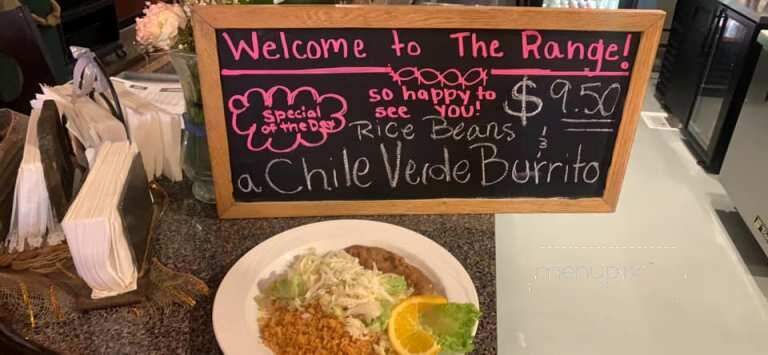 Welcome to The Range!
special
of the Day
so happy to
see you!
$9.50
Rice Beans &
a Chile Verde Burrito
menupix